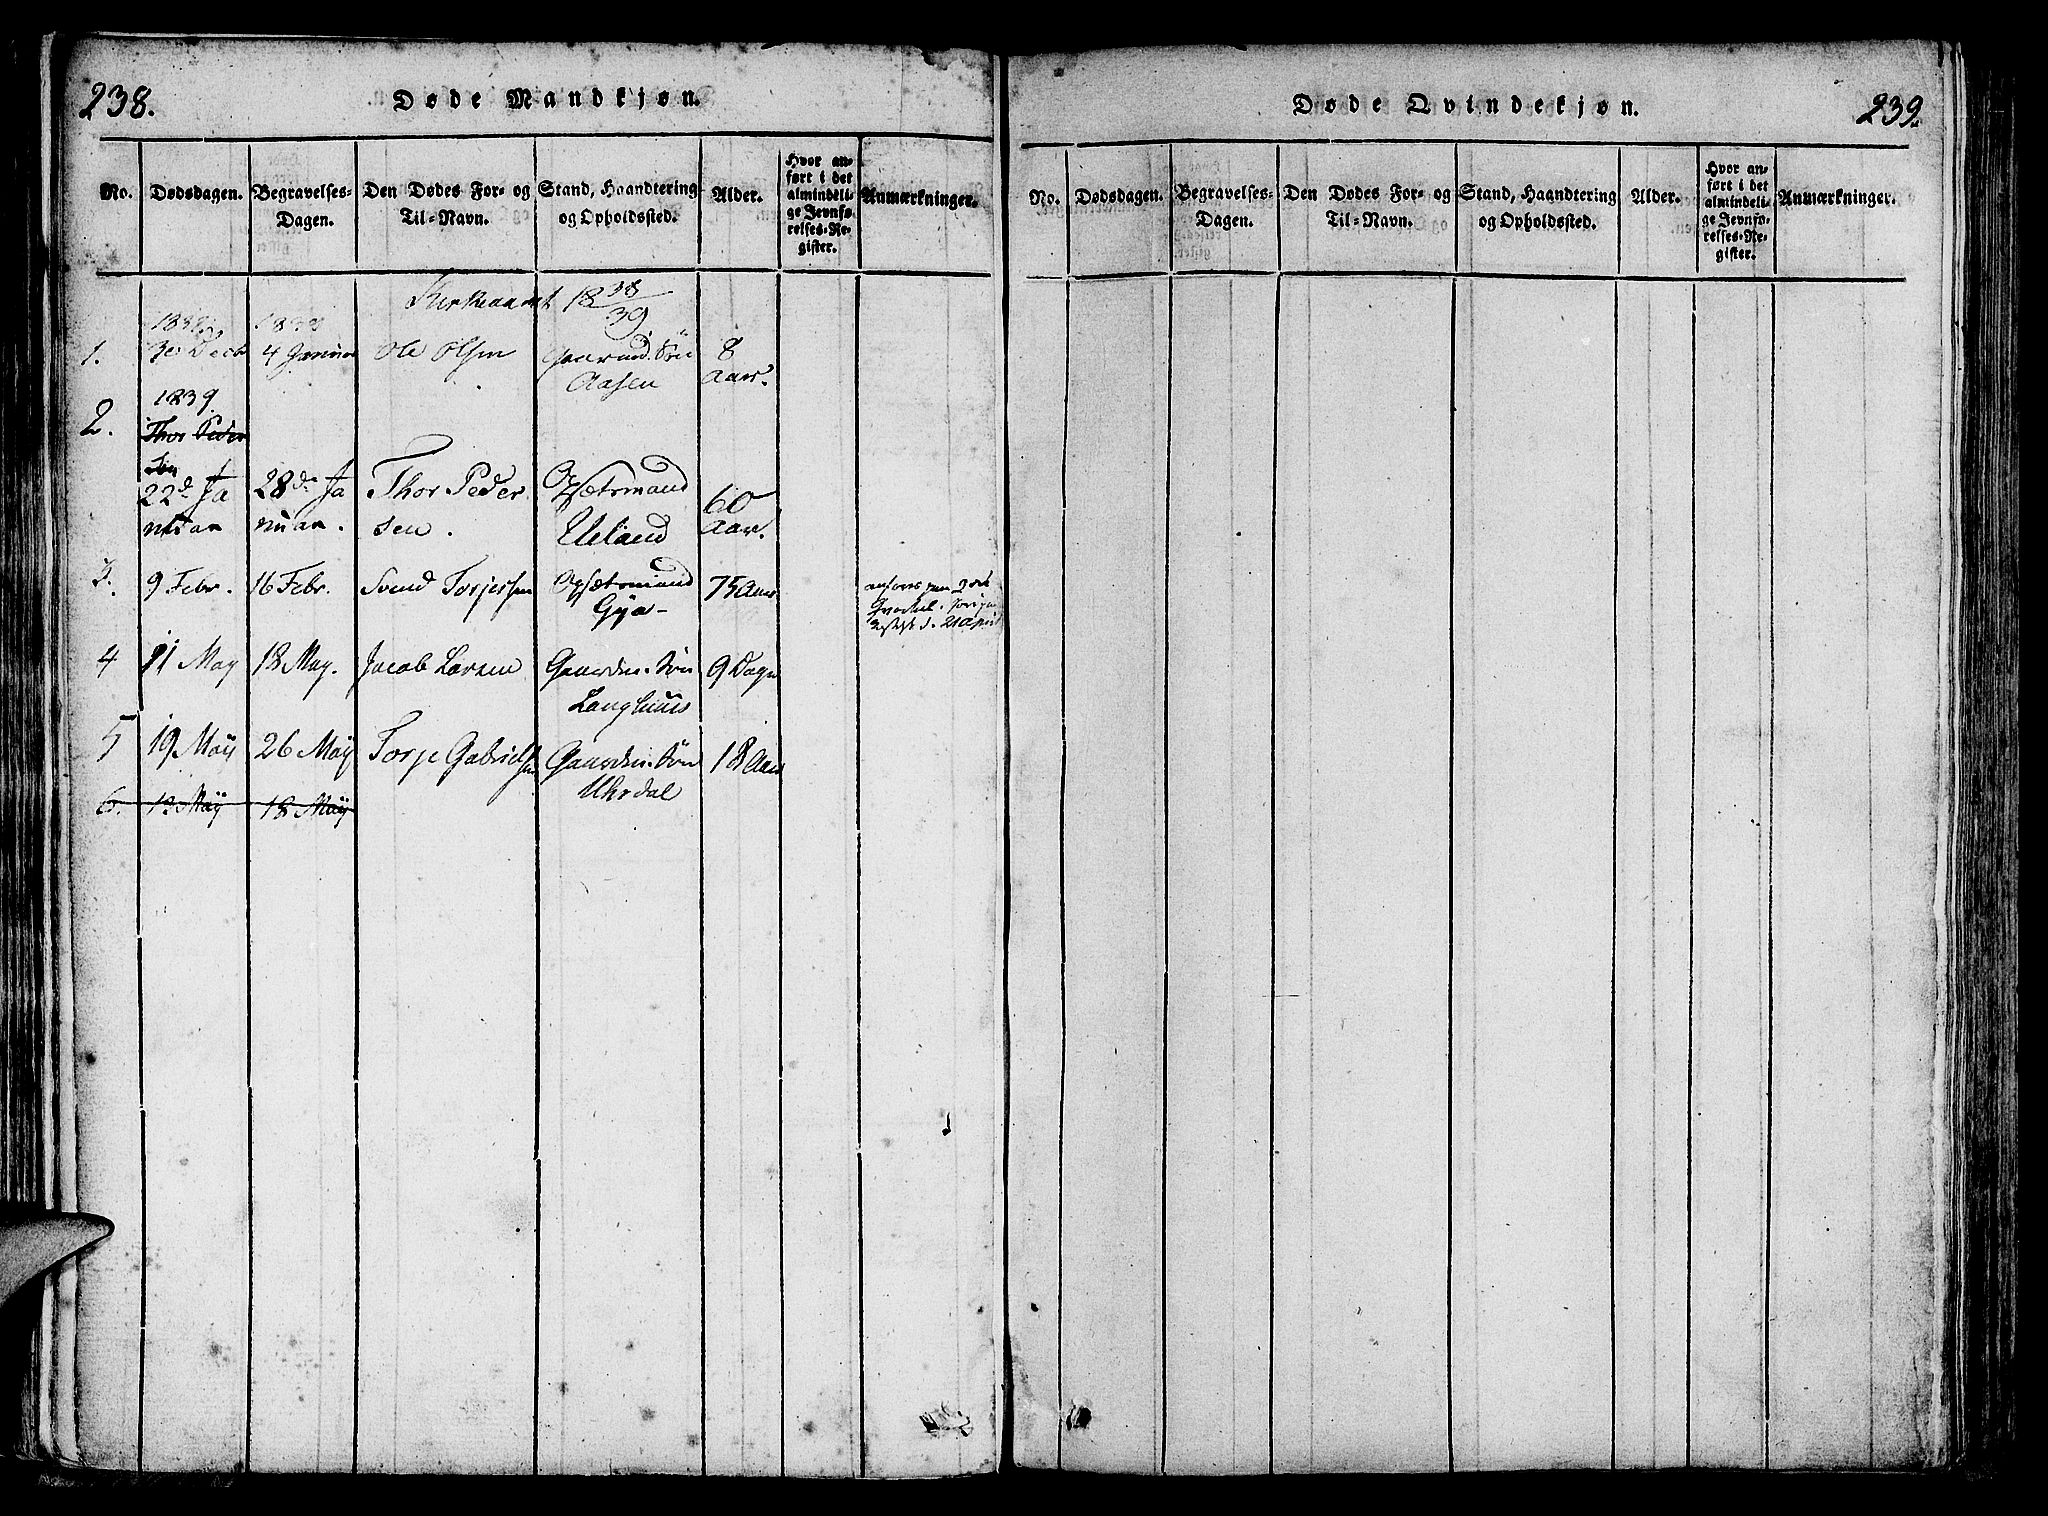 238.
Døde Mandkjøn.
No.
Dødsdagen.
Begravelses-
Dagen.
Den Dødes For- og
Til-Navn.
Stand, Haandtering
og Opholdssted.
Alder.
Hvor an-
ført i det
almindeli-
ge Jevnfø-
relses-Re-
gister.
Anmærkninger.
Kirkeaaret 1838/39
1.
Ole Olsen
8
Aasen
Aar.
2.
1839.
Thor Peder
sen
22d Ja
nuar
28de Ja
nuar.
Thor Peder
sen.
Opsætsmand
Ueland
60
Aar.
3.
9 Febr.
16 Febr.
Svend Torjersen
Opsætsmand
Gya-
75 Aar
4
11 May
18 May.
Jacob Larsen
Gaardm. Søn
Langhuus
9 Dage
5
19 May
26 May
Torje Gabrielsen
Gaardm. Søn
Uhrdal
18 Aar
6.
18 May
239.
Døde Qvindekjøn.
No.
Dødsdagen.
Begravelses-
Dagen.
Den Dødes For- og
Til-Navn.
Stand, Haandtering
og Opholdssted.
Alder.
Hvor an-
ført i det
almindeli-
ge Jevnfø-
relses-Re-
gister.
Anmærkninger.